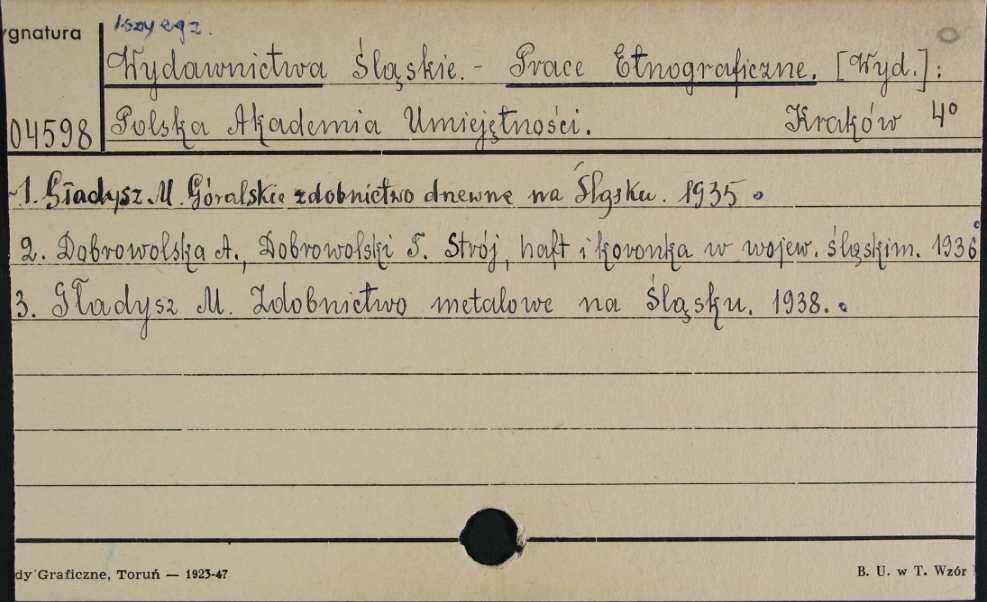 ygnatura
1-szy egz.
Wydawnictwa Śląskie. - Prace Etnograficzne. [Wyd.]:
04598 Polska Akademia Umiejętności. Kraków 4°
1. Gładysz M. Góralskie zdobnictwo drzewne na Śląsku. 1935
2. Dobrowolska A., Dobrowolski T. Strój, haft i koronka w wojew. śląskim. 1936
3. Gładysz M. Zdobnictwo metalowe na Śląsku. 1938.
dy Graficzne, Toruń — 1923-47
B. U. w T. Wzór